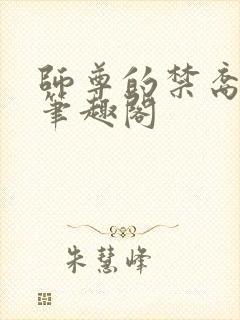 师尊的禁脔
笔趣阁
朱慧峰